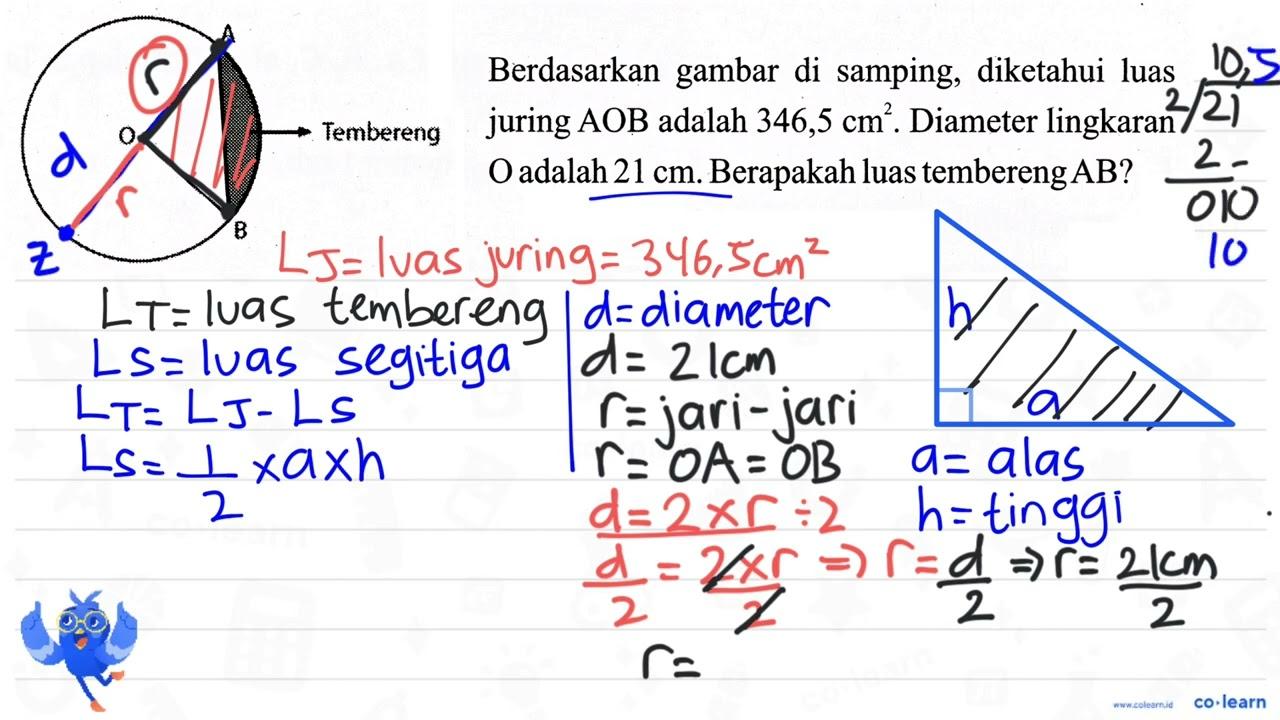 A
r
O
Tembereng
d
r
B
Z
Berdasarkan gambar di samping, diketahui luas
juring AOB adalah 346,5 cm². Diameter lingkaran
O adalah 21 cm. Berapakah luas tembereng AB?
10,5
2/21
2 -
010
10
LJ= luas juring = 346,5cm²
LT= luas tembereng
LS= luas segitiga
LT= LJ- LS
LS= 1/2 x a x h
d= diameter
d= 21cm
r= jari-jari
r= OA= OB
d= 2 x r ÷2
d/2 = 2 x r/2 ⇒ r= d/2 ⇒ r= 21cm/2
r=
h
a
a= alas
h= tinggi
www.colearn.id co·learn